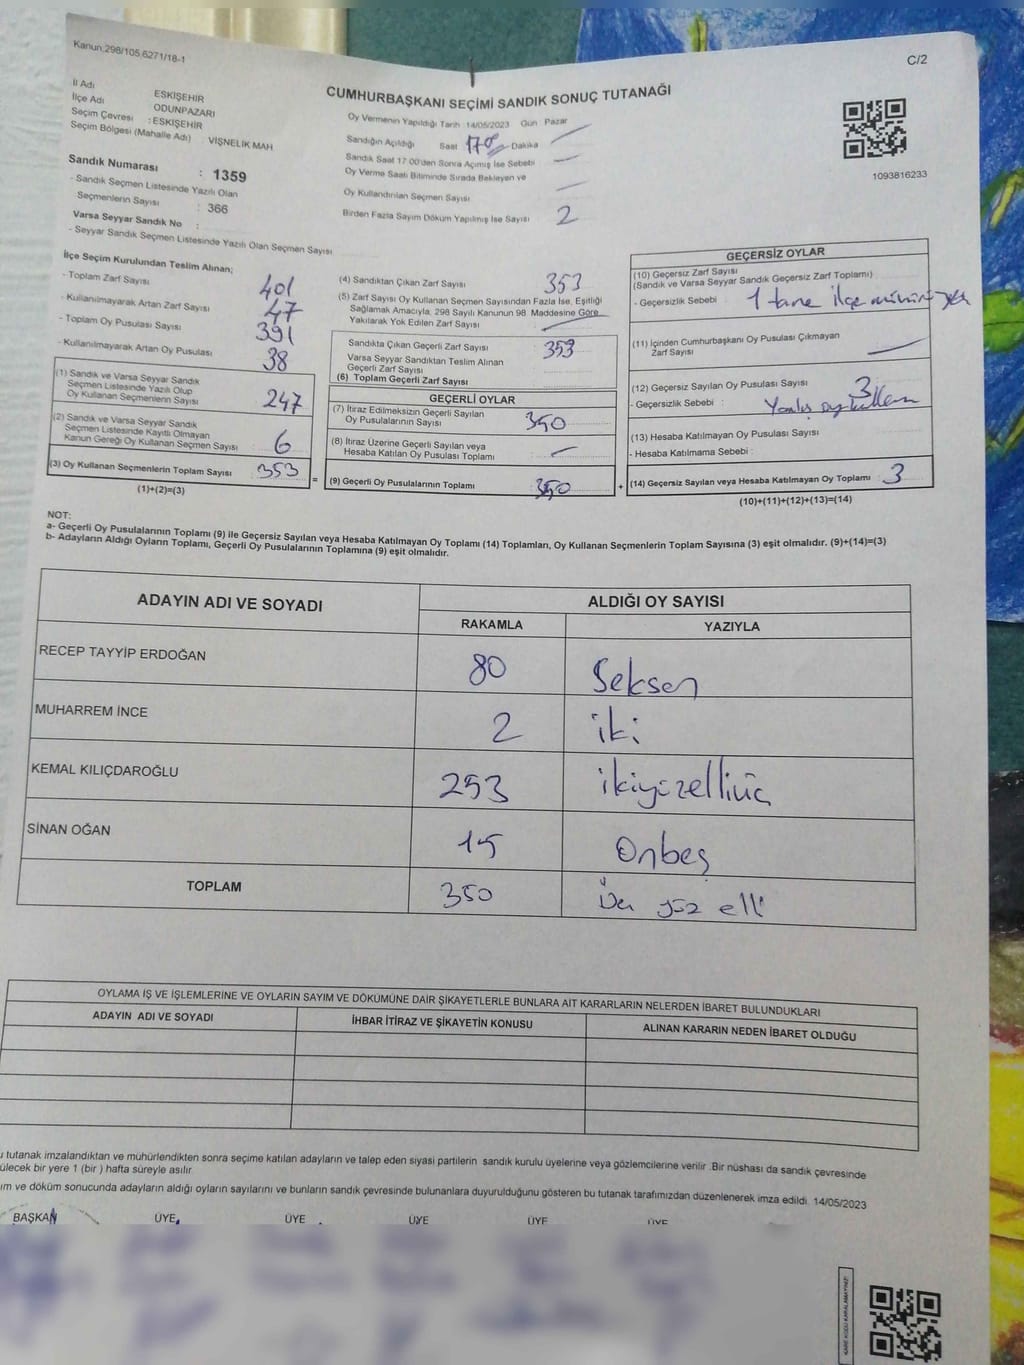 Kanun;298/105,6271/18-1
C/2
CUMHURBAŞKANI SEÇİMİ SANDIK SONUÇ TUTANAĞI
İl Adı ESKİŞEHİR
İlçe Adı ODUNPAZARI
Seçim Çevresi : ESKİŞEHİR
Seçim Bölgesi (Mahalle Adı) : VİŞNELİK MAH
Sandık Numarası : 1359
- Sandık Seçmen Listesinde Yazılı Olan
Seçmenlerin Sayısı : 366
Varsa Seyyar Sandık No :
- Seyyar Sandık Seçmen Listesinde Yazılı Olan Seçmen Sayısı
Oy Vermenin Yapıldığı Tarih 14/05/2023 Gün Pazar
Sandığın Açıldığı Saat 17 Dakika
Sandık Saat 17:00'den Sonra Açılmış İse Sebebi
Oy Verme Saati Bitiminde Sırada Bekleyen ve
Oy Kullandırılan Seçmen Sayısı
Birden Fazla Sayım Döküm Yapılmış İse Sayısı 2
1093816233
İlçe Seçim Kurulundan Teslim Alınan;
- Toplam Zarf Sayısı 401
- Kullanılmayarak Artan Zarf Sayısı 47
- Toplam Oy Pusulası Sayısı 391
- Kullanılmayarak Artan Oy Pusulası 38
(1) Sandık ve Varsa Seyyar Sandık
Seçmen Listesinde Yazılı Olup
Oy Kullanan Seçmenlerin Sayısı 247
(2) Sandık ve Varsa Seyyar Sandık
Seçmen Listesinde Kayıtlı Olmayan
Kanun Gereği Oy Kullanan Seçmen Sayısı : 6
(3) Oy Kullanan Seçmenlerin Toplam Sayısı : 353
(1)+(2)=(3)
(4) Sandıktan Çıkan Zarf Sayısı 353
(5) Zarf Sayısı Oy Kullanan Seçmen Sayısından Fazla İse, Eşitliği
Sağlamak Amacıyla, 298 Sayılı Kanunun 98. Maddesine Göre
Yakılarak Yok Edilen Zarf Sayısı
Sandıkta Çıkan Geçerli Zarf Sayısı : 353
Varsa Seyyar Sandıktan Teslim Alınan
Geçerli Zarf Sayısı
(6) Toplam Geçerli Zarf Sayısı
GEÇERLİ OYLAR
(7) İtiraz Edilmeksizin Geçerli Sayılan
Oy Pusulalarının Sayısı 350
(8) İtiraz Üzerine Geçerli Sayılan veya
Hesaba Katılan Oy Pusulası Toplamı
= (9) Geçerli Oy Pusulalarının Toplamı 350
GEÇERSİZ OYLAR
(10) Geçersiz Zarf Sayısı
(Sandık ve Varsa Seyyar Sandık Geçersiz Zarf Toplamı)
- Geçersizlik Sebebi : 1 tane ilçe mührü yok
(11) İçinden Cumhurbaşkanı Oy Pusulası Çıkmayan
Zarf Sayısı
(12) Geçersiz Sayılan Oy Pusulası Sayısı : 3
- Geçersizlik Sebebi : Yanlış oy
(13) Hesaba Katılmayan Oy Pusulası Sayısı
- Hesaba Katılmama Sebebi :
+ (14) Geçersiz Sayılan veya Hesaba Katılmayan Oy Toplamı : 3
(10)+(11)+(12)+(13)=(14)
NOT:
a- Geçerli Oy Pusulalarının Toplamı (9) ile Geçersiz Sayılan veya Hesaba Katılmayan Oy Toplamı (14) Toplamları, Oy Kullanan Seçmenlerin Toplam Sayısına (3) eşit olmalıdır. (9)+(14)=(3)
b- Adayların Aldığı Oyların Toplamı, Geçerli Oy Pusulalarının Toplamına (9) eşit olmalıdır.
ADAYIN ADI VE SOYADI ALDIĞI OY SAYISI
RAKAMLA YAZIYLA
RECEP TAYYİP ERDOĞAN 80 Seksen
MUHARREM İNCE 2 iki
KEMAL KILIÇDAROĞLU 253 ikiyüzelliüç
SİNAN OĞAN 15 Onbeş
TOPLAM 350 Üç yüz elli
OYLAMA İŞ VE İŞLEMLERİNE VE OYLARIN SAYIM VE DÖKÜMÜNE DAİR ŞİKAYETLERLE BUNLARA AİT KARARLARIN NELERDEN İBARET BULUNDUKLARI
ADAYIN ADI VE SOYADI İHBAR İTİRAZ VE ŞİKAYETİN KONUSU ALINAN KARARIN NEDEN İBARET OLDUĞU
u tutanak imzalandıktan ve mühürlendikten sonra seçime katılan adayların ve talep eden siyasi partilerin sandık kurulu üyelerine veya gözlemcilerine verilir. Bir nüshası da sandık çevresinde
ülecek bir yere 1 (bir) hafta süreyle asılır.
ım ve döküm sonucunda adayların aldığı oyların sayılarını ve bunların sandık çevresinde bulunanlara duyurulduğunu gösteren bu tutanak tarafımızdan düzenlenerek imza edildi. 14/05/2023
BAŞKAN ÜYE ÜYE ÜYE ÜYE ÜYE
KARE KODU KARALAMAYINIZ!